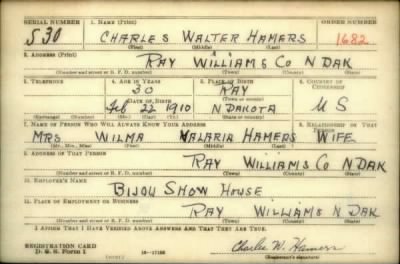 SERIAL NUMBER 1. NAME (Print) ORDER NUMBER
S30 CHARLES WALTER HAMERS 1682
(First) (Middle) (Last)
2. ADDRESS (Print)
RAY WILLIAMS CO N DAK
(Number and street or R. F. D. number) (Town) (County) (State)
3. TELEPHONE 4. AGE IN YEARS 5. PLACE OF BIRTH 6. COUNTRY OF CITIZENSHIP
30 RAY
DATE OF BIRTH (Town or county)
Feb 22 1910 N DAKOTA U S
(Exchange) (Number) (Mo.) (Day) (Yr.) (State or country)
7. NAME OF PERSON WHO WILL ALWAYS KNOW YOUR ADDRESS 8. RELATIONSHIP OF THAT PERSON
MRS WILMA VALARIA HAMERS WIFE
(Mr., Mrs., Miss) (First) (Middle) (Last)
9. ADDRESS OF THAT PERSON
RAY WILLIAMS CO N DAK
(Number and street or R. F. D. number) (Town) (County) (State)
10. EMPLOYER'S NAME
BIJOU SHOW HOUSE
11. PLACE OF EMPLOYMENT OR BUSINESS
RAY WILLIAMS N DAK
(Number and street or R. F. D. number) (Town) (County) (State)
I AFFIRM THAT I HAVE VERIFIED ABOVE ANSWERS AND THAT THEY ARE TRUE.
REGISTRATION CARD
D. S. S. Form 1 16—17105 Charles W. Hamers
(Registrant's signature)